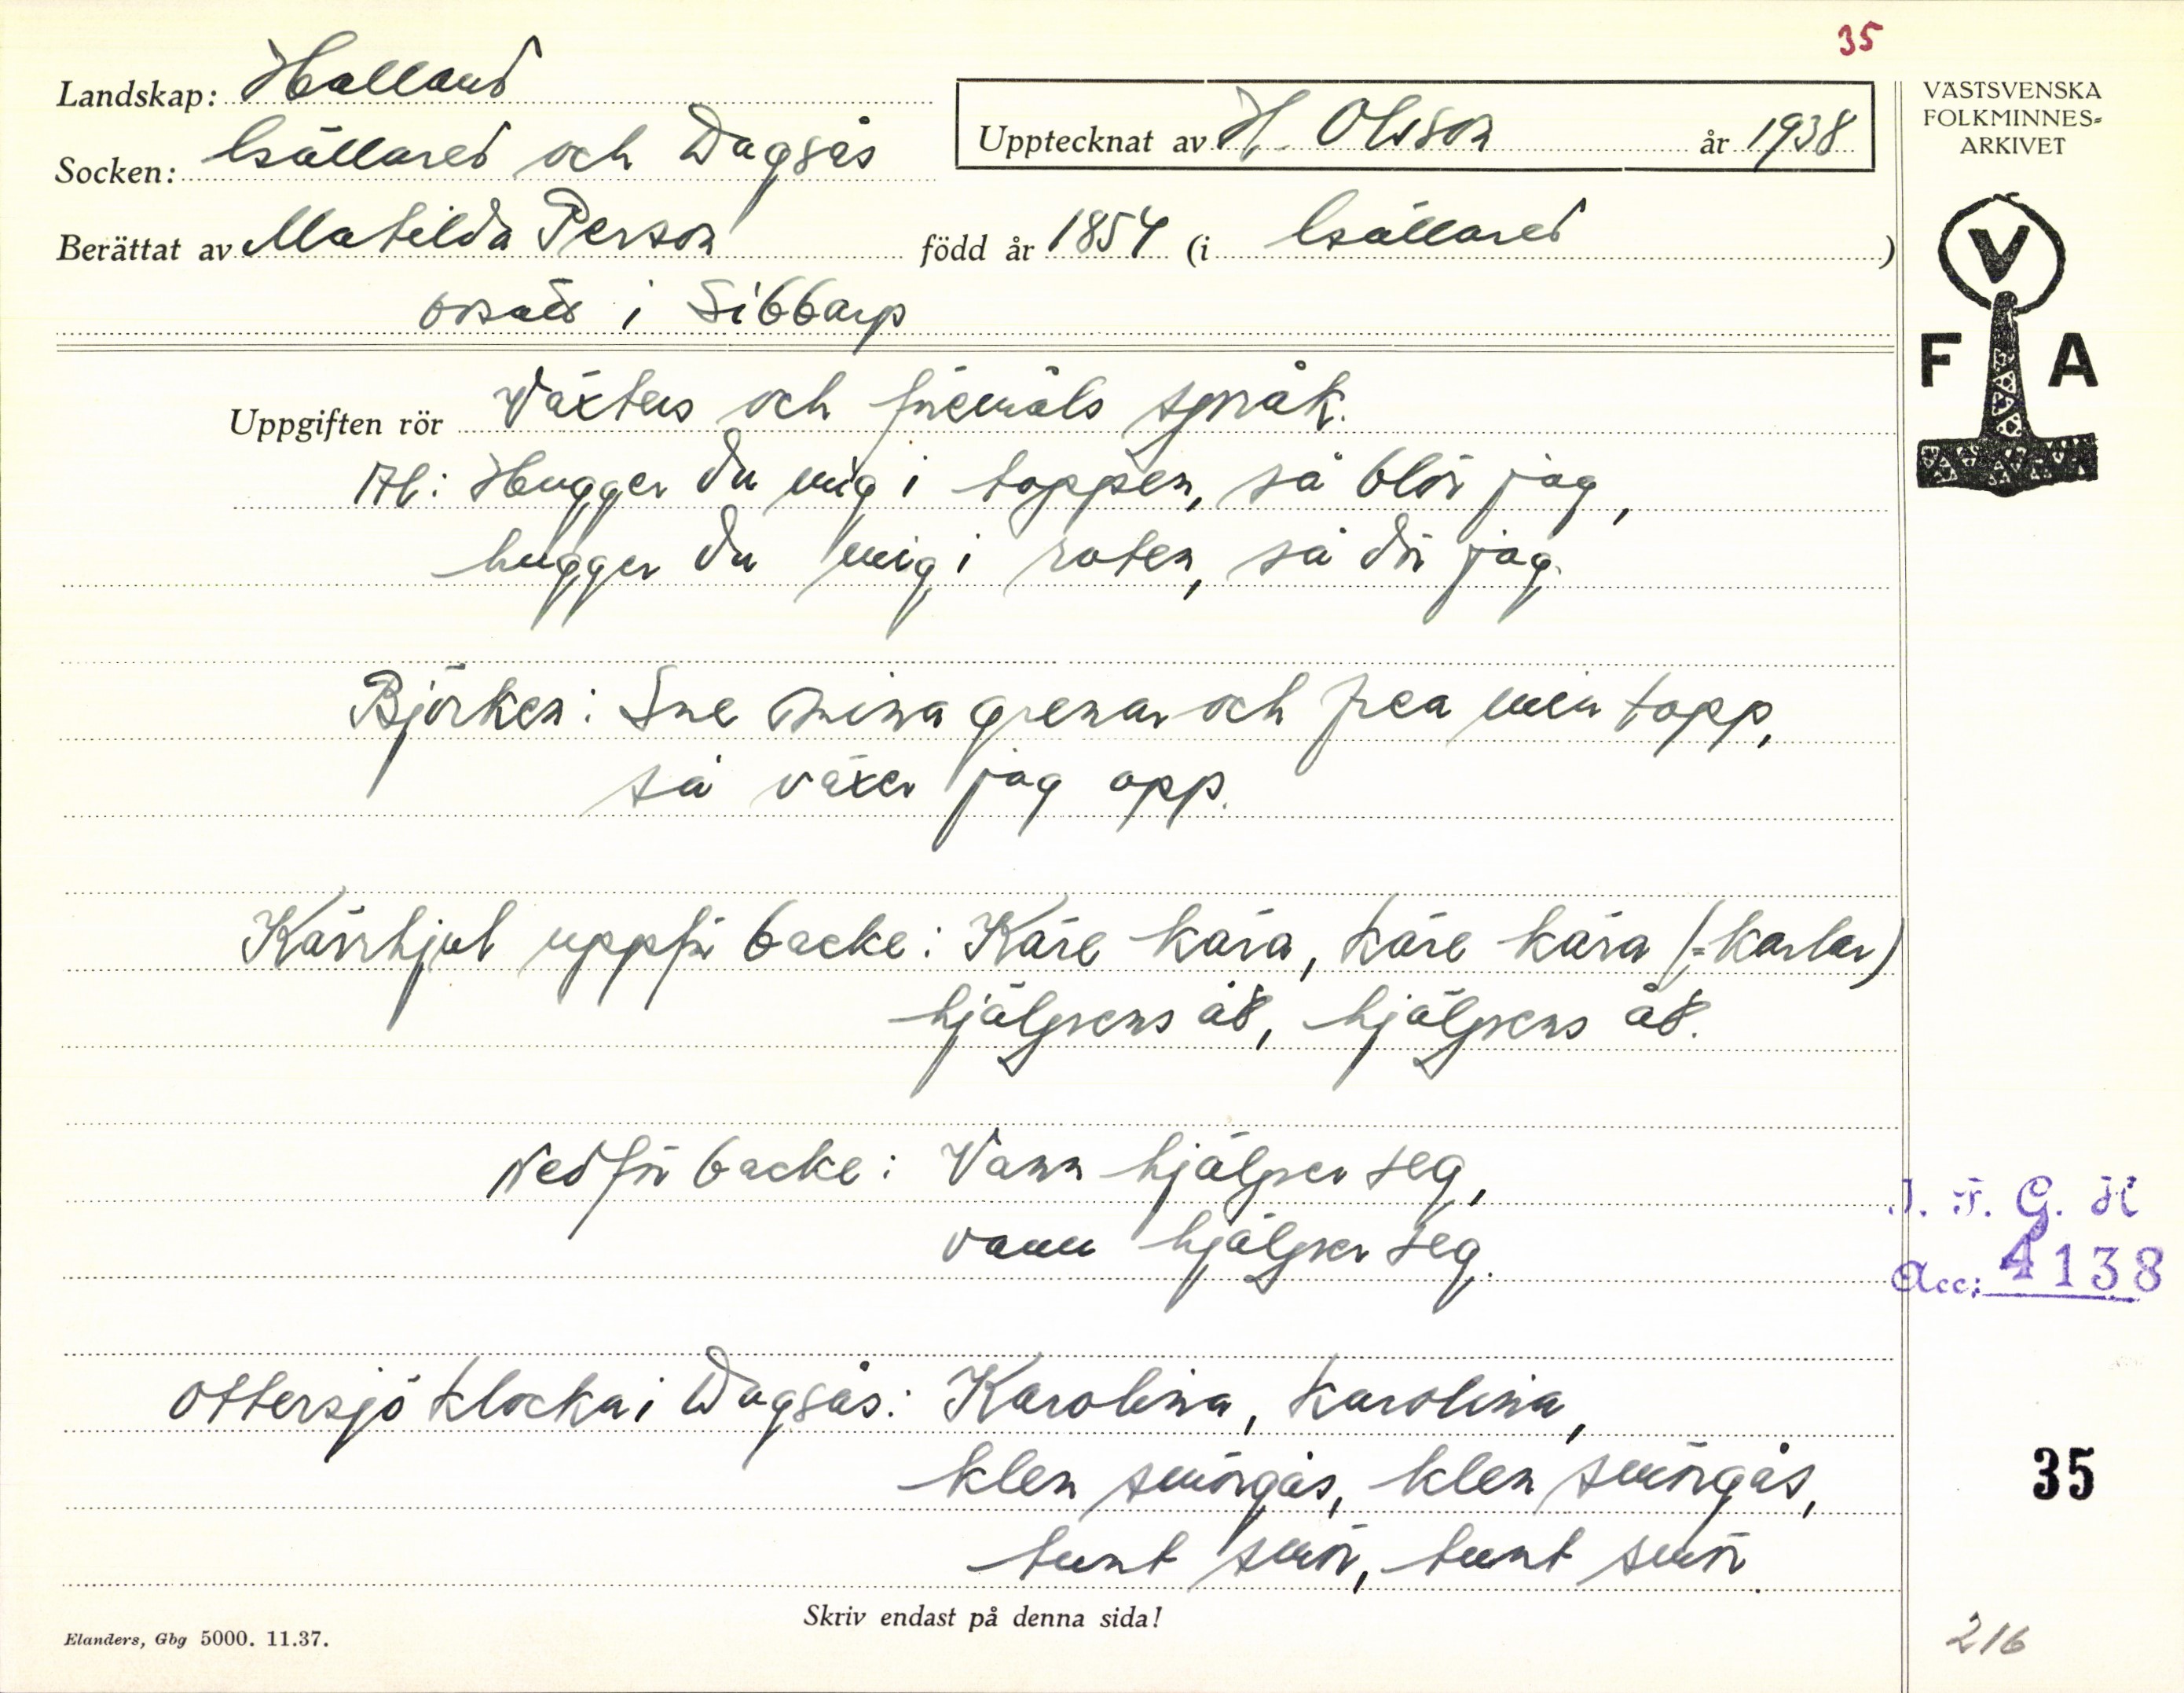 35
Landskap: Halland
Socken: Gällared och Dagsås
Upptecknat av H. Olsson år 1938
Berättat av Matilda Person född år 1854 (i Gällared)
bosatt i Sibbarp
VÄSTSVENSKA
FOLKMINNES-
ARKIVET
V
F A
Uppgiften rör Växters och föremåls språk.
Al: Hugger du mig i toppen, så blör jag,
hugger du mig i roten, så dör jag.
Björken: Sne mina grenar och frea min topp,
så växer jag opp.
Kärrhjul uppför backe: Käre kara, käre kara (=karlar)
hjälpens åt, hjälpens åt.
Nedför backe: Vann hjälper seg,
vann hjälper seg.
I. F. G. H
Acc: 4138
Ottersjö klocka i Dagsås: Karolina, karolina,
klen smörgås, klen smörgås,
35
tunt smör, tunt smör.
Skriv endast på denna sida!
Elanders, Gbg 5000. 11.37.
216